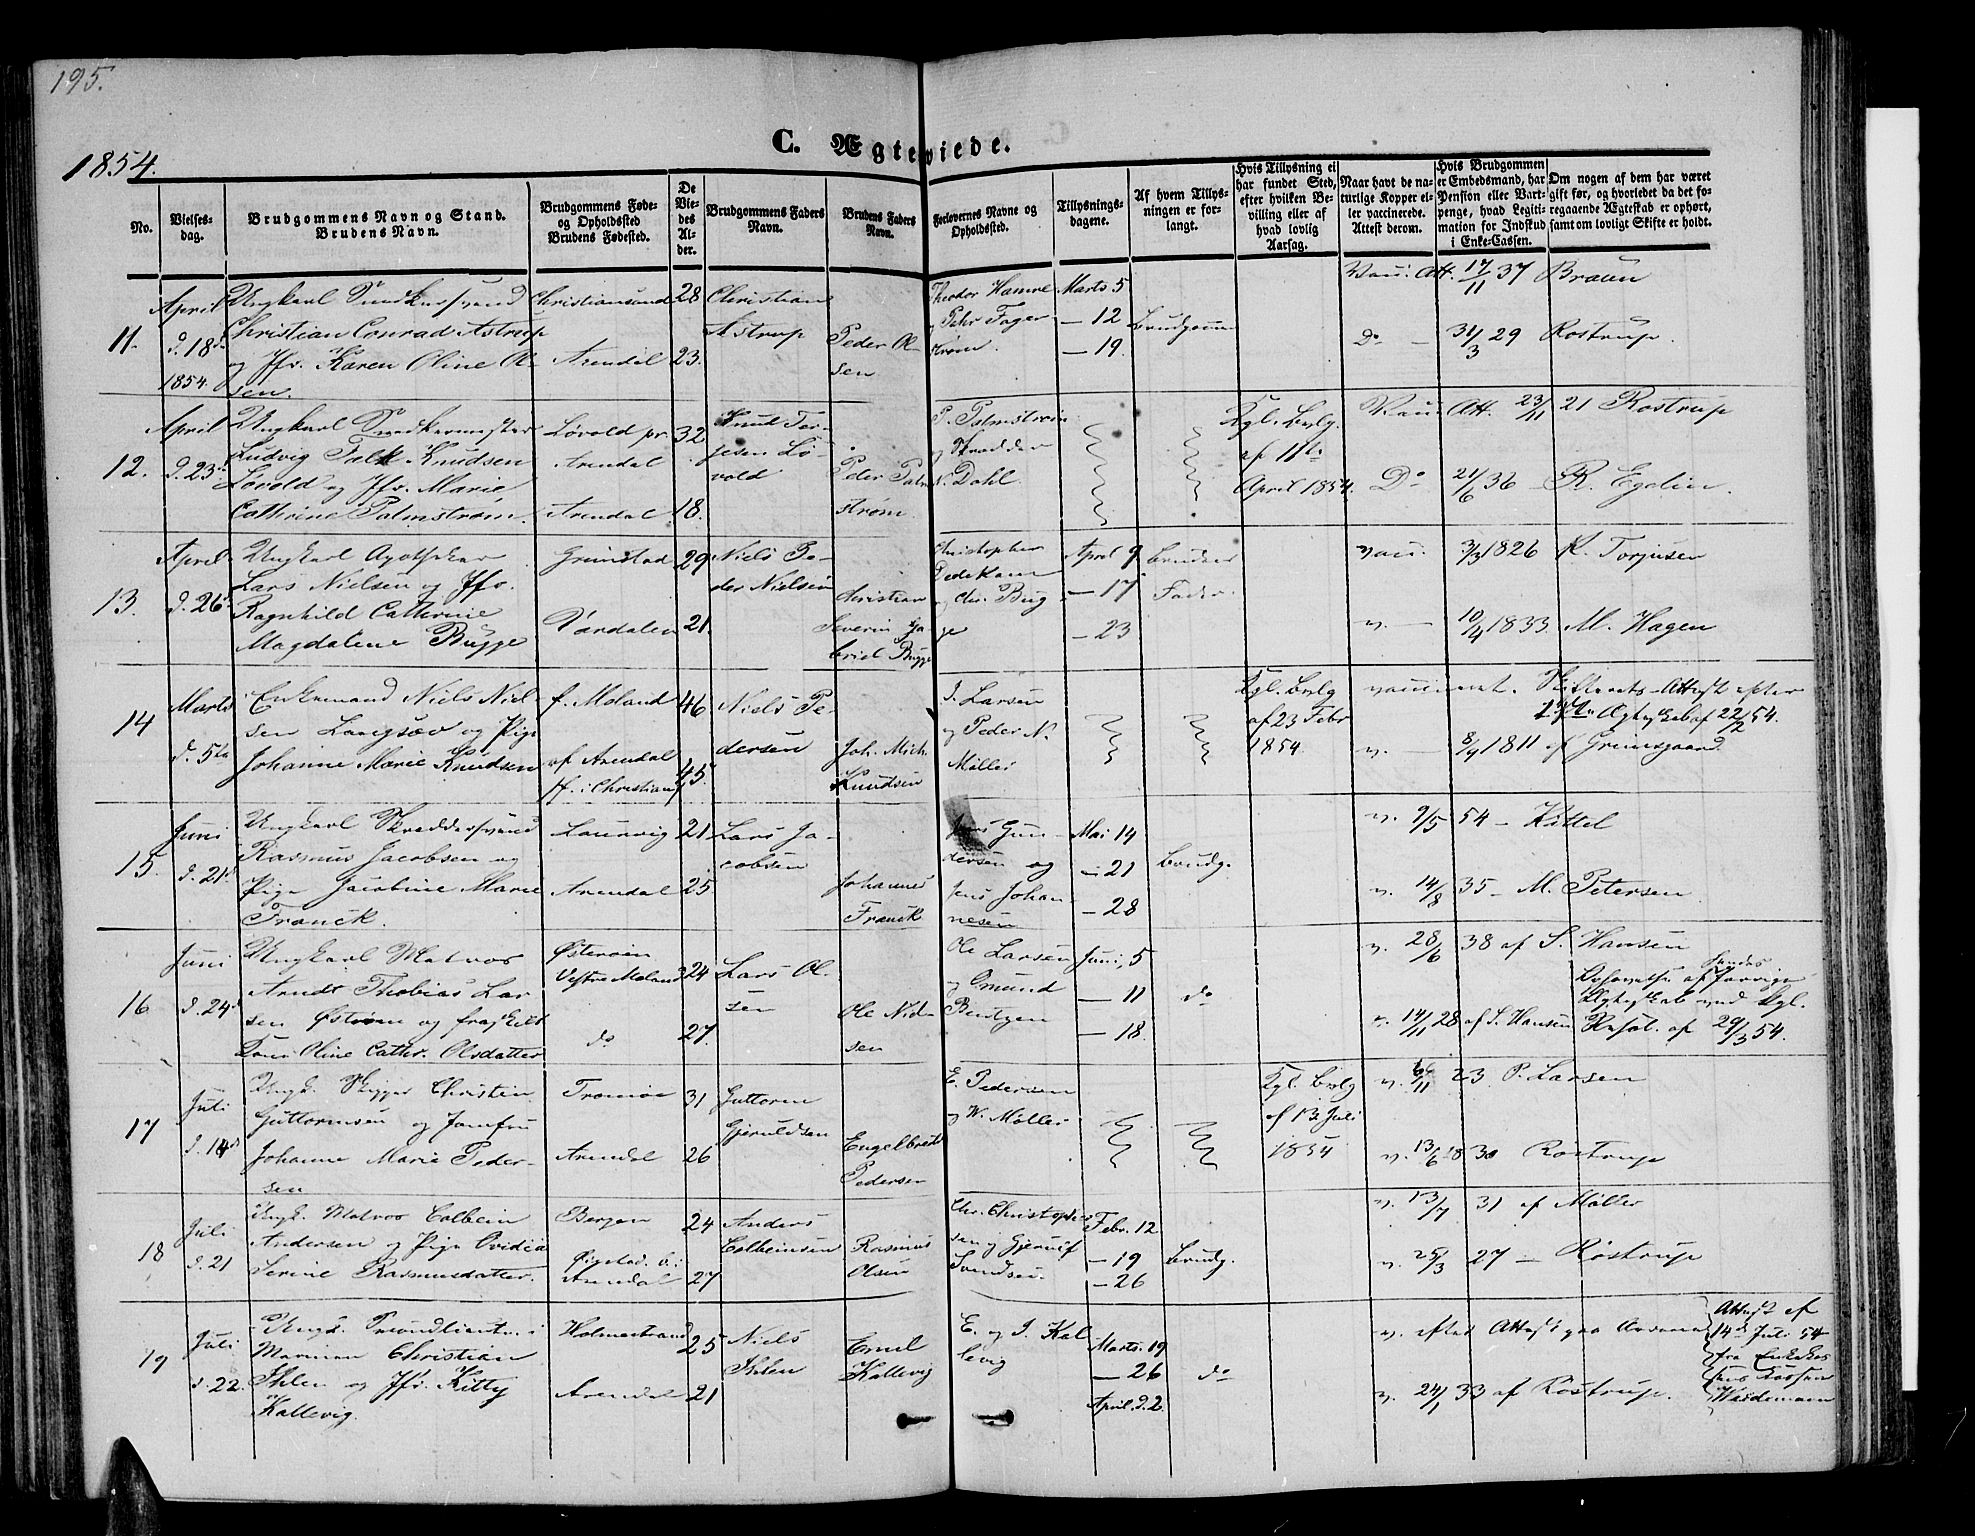 195.
C. Ægteviede.
1854.
No.
Vielses-
dag.
Brudgommens Navn og Stand.
Brudens Navn.
Brudgommens Føde-
og Opholdssted
Brudens Fødested.
De
Vie-
des
Al-
der.
Brudgommens Faders
Navn.
Brudens Faders
Navn.
Forlovernes Navne og
Opholdssted.
Tillysnings-
dagene.
Af hvem Tillys-
ningen er for-
langt.
Hvis Tillysning ei
har fundet Sted,
efter hvilken Be-
villing eller af
hvad lovlig
Aarsag.
Naar havt de na-
turlige Kopper el-
ler vaccinerede.
Attest derom.
Hvis Brudgommen
er Embedsmand, har
Pension eller Vart-
penge, hvad Legiti-
mation for Indskud
i Enke-Cassen.
Om nogen af dem har været
gift før, og hvorledet da det fo-
regaaende Ægteskab er ophørt,
samt om lovligt Skifte er holdt.
11.
April
d. 18d
1854.
Ungkarl Snedkersvend
Christian Conrad Astrup
og Jfr. Karen Oline Ol-
sen.
Christiansund
Arendal
28
23.
Christian
Astrup
Peder Ol-
sen
Theodor Hamre
og Pehr Fager
strøm.
Marts 5
— 12
— 19.
Brudgom
Att. 17/11 37 Braun
Do — 31/3 29 Rostrup.
12.
April
d. 23d
Ungkarl Snedkermester
Ludvig Falk Knudsen
Løvold og Jfr. Marie
Cathrine Palmstrøm.
Løvold pr.
Arendal
Arendal
32
18.
Knud Ter-
jesen Lø-
vold
Peder Palm
strøm
P. Palmstrøm
og Skrædder
N. Dahl.
Kgl. Bevlg.
af 11te
April 1854.
Att. 23/11 21 Rostrup
Do 21/6 36 — R. Egelin.
13.
April
d. 26d
Ungkarl Apotheker
Lars Nielsen og Jfr.
Ragnhild Cathrine
Magdalene Bugge
Grimstad
Værdalen
29
21.
Niels Pe-
der Nielsen
Christian
Severin Ga-
briel Bugge
Christopher
Dedekam
og Chr. Bug
ge
April 9
— 17
— 23
Brudens
Fader.
vacc. 3/3 1826 K. Torjusen
v. — 10/4 1833. M. Hagen
14
Marts
d. 5te
Enkemand Niels Niel-
sen Langsæv og Pige
Johanne Marie Knudsen
f. Moland
af Arendal
ff. i Christians
46
45.
Niels Pe-
dersen
Joh. Mich.
Knudsen
J. Larsen
og Peder N.
Møller
Kgl. Bevlg
af 23 Febr
1854.
vaccineret. Skifterets-Attest efter
1ste Ægteskab af 22/2 54.
v. — 8/9 1811 af Grimsgaard
15.
Juni
d. 21d
Ungkarl Skræddersvend
Rasmus Jacobsen og
Pige Jacobine Marie
Franck.
Laurvig
Arendal
21
25
Lars Ja-
cobsen
Johannes
Franck
Jens Gun-
dersen og
Jens Johan
nesen
Mai 14
— 21
— 28
Brudg.
v. 9/5 54 — Kittel
v. 14/8 35 — M. Petersen
16
Juni
d. 24d
Ungkarl Matros
Arndt Thobias Lar-
sen Østrøen og fraskilt
Kone Oline Cathr. Olsdatter
Østerøen
Vestre Moland
do
24
27.
Lars Ol-
sen
Ole Niel-
sen
Ole Larsen
og Omund
Bentzen
Juni, 5
— 11
— 18.
do
v. 28/6 38 af S. Hansen
v. 14/11 28 af S. Hansen
Ægteskab ved Kgl.
Resol. af 29/3 54.
17
Juli
d. 14d
Ungk. Skipper Christen
Guttormsen og Jomfru
Johanne Marie Peder-
sen
Tromøe
Arendal
31
26
Guttorm
Gjeruldsen
Engelbrecht
Pedersen
E. Pedersen
og W. Møller
Kgl. Bevlg
af 13 Juli
1854
23. P. Larsen
v. 13/6 1830 Rostrup
18
Juli
d. 21
Ungk. Matros Colbein
Andersen og Pige Ovidia
Serine Rasmusdatter.
Bergen
Øiestad v.
Arendal
24
27
Anders
Colbeinsen
Rasmus
Olsen
Chr. Christophe
sen og Gjerulf
Svendsen.
Febr. 12
— 19
— 26
Brudg.
v. 13/7 31 af Møller
v. 25/3 27 — Rostrup
19
Juli
d. 22.
Ungk. Premierlieutn. i
Marinen Christian
Ihlen og Jfr. Kitty
Kallevig.
Holmestrand
Arendal
25
21
Niels
Ihlen
Emil
Kallevig
E. og J. Kal
levig
Marts. 19
— 26
April. d. 2.
do
v. efter Attest paa
v. 24/1 33 af Rostrup.
Attest af
14d Juli 54
fra Enkekas
Weidemann